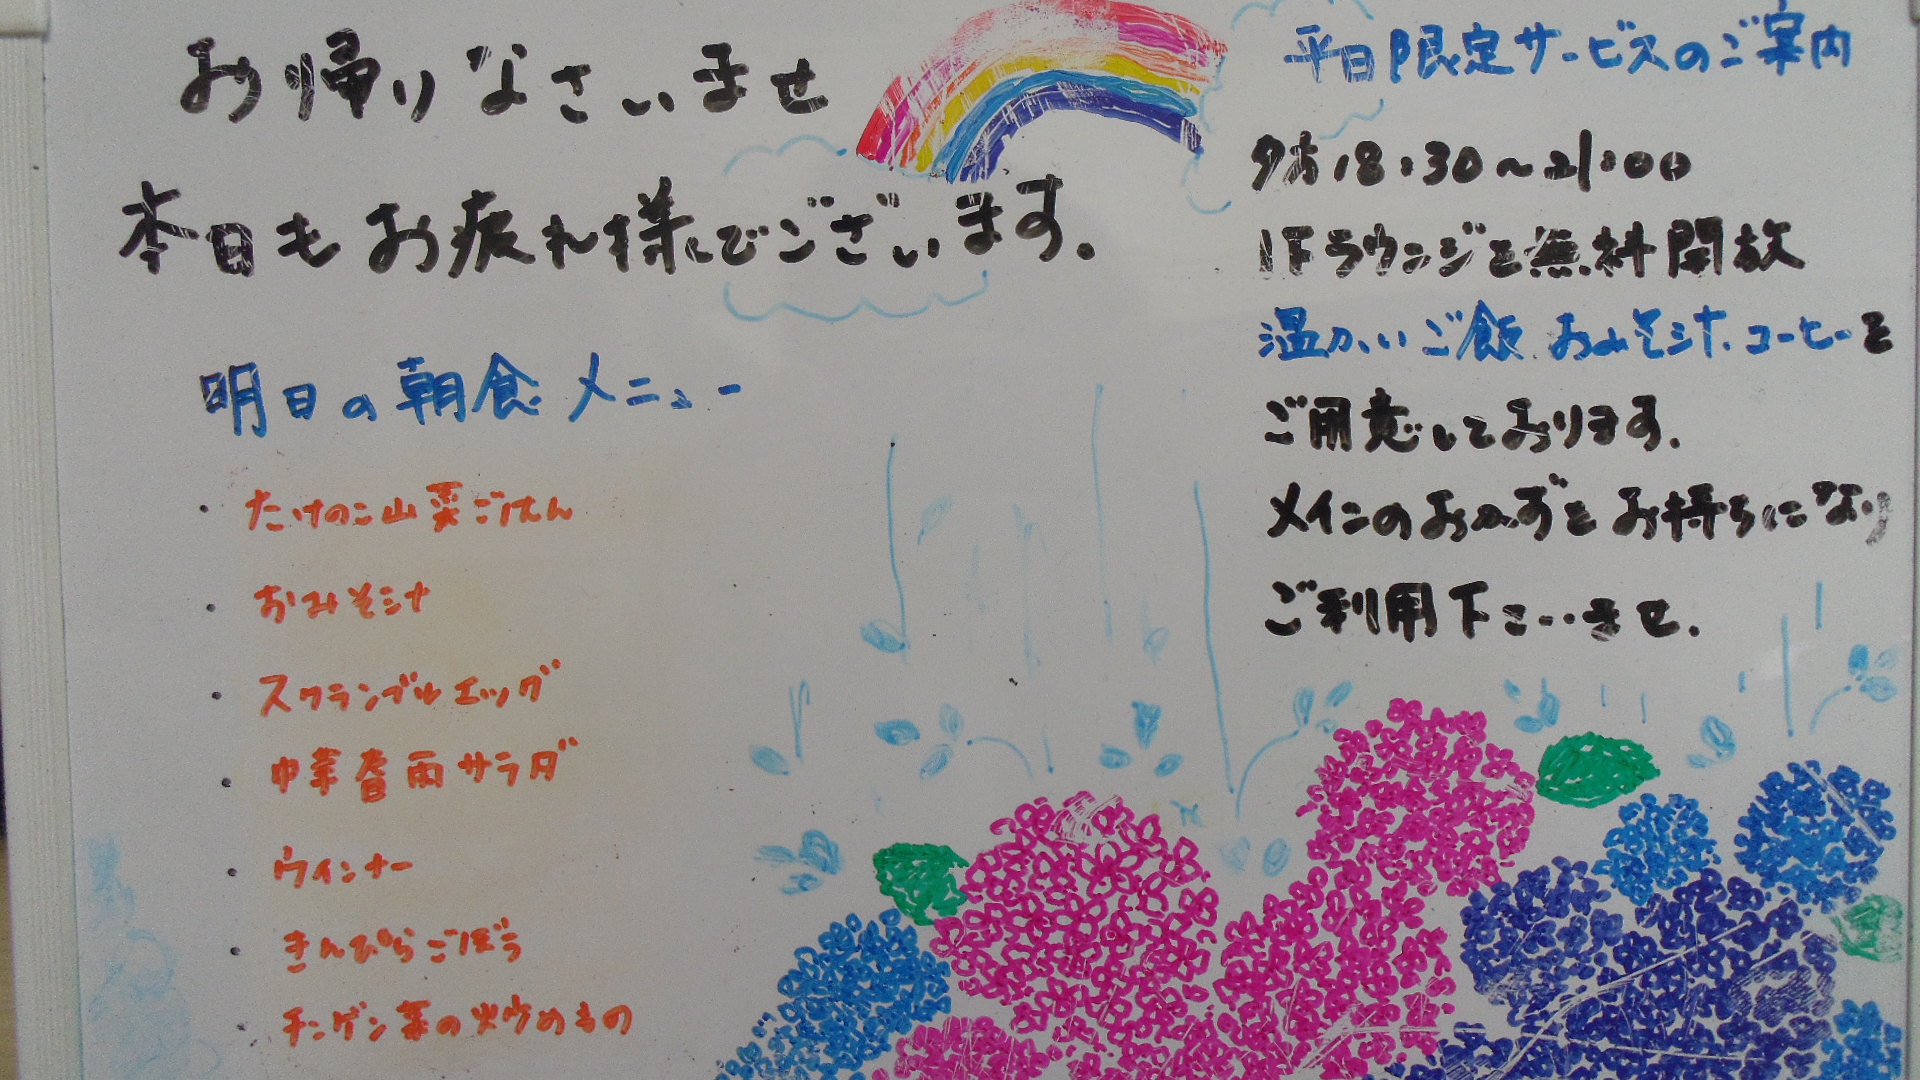 お帰りなさいませ
本日もお疲れ様でございます。
明日の朝食メニュー
・たけのこ山菜ごはん
・おみそ汁
・スクランブルエッグ
・中華春雨サラダ
・ウインナー
・きんぴらごぼう
・チンゲン菜の炒めもの
平日限定サービスのご案内
夕方18:30~21:00
1Fラウンジを無料開放
温かいご飯、おみそ汁、コーヒーを
ご用意しております。
メインのおかずをお持ちになり
ご利用下さいませ。